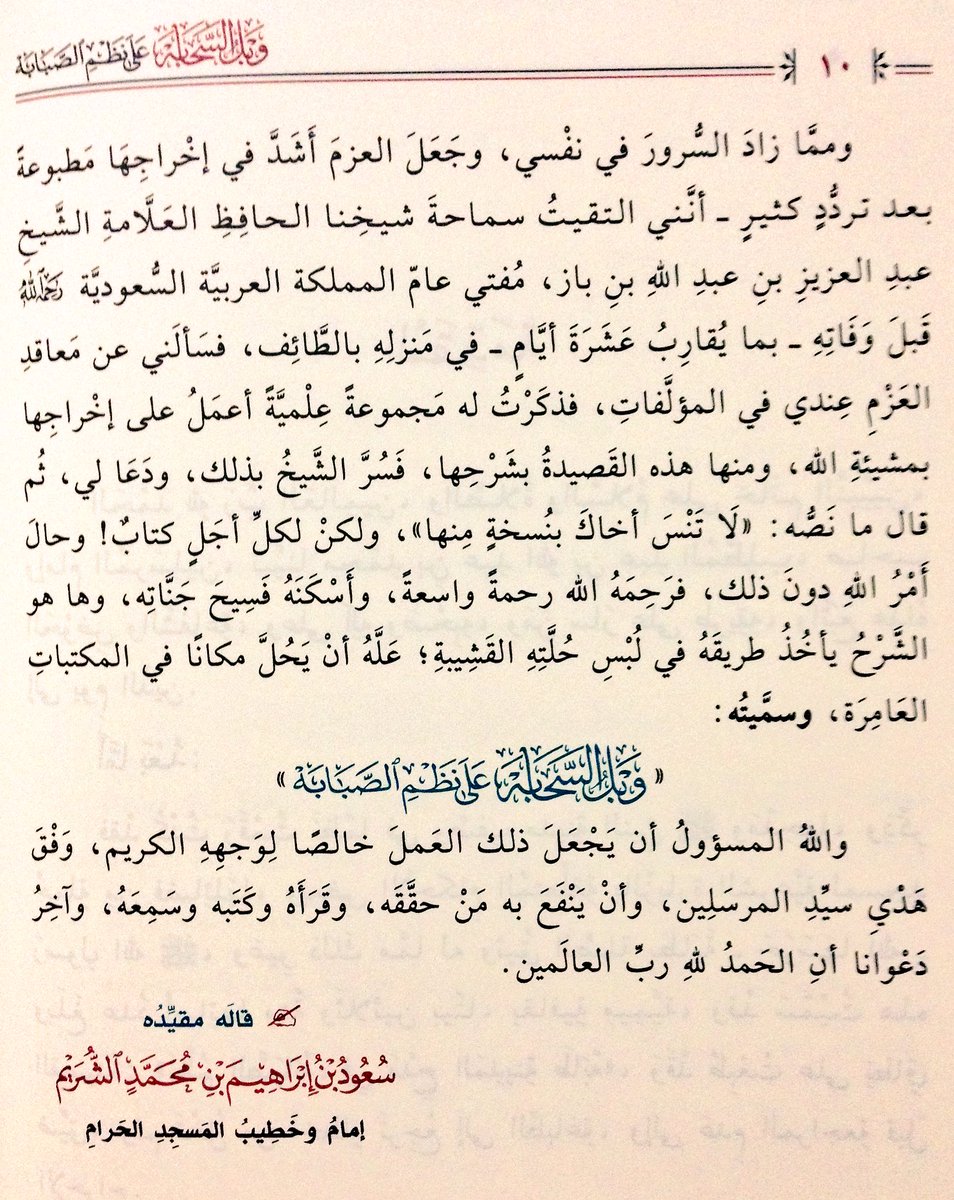 وَبْلُ السَّحَابَة عَلَى نَظْمِ الصَّبَابَة
١٠
وممَّا زادَ السُّرورَ في نفْسي، وجَعَلَ العزمَ أَشَدَّ في إخْراجِهَا مَطبوعةً
بعد تردُّدٍ كثيرٍ ـ أنَّني التقيتُ سماحةَ شيخِنا الحافِظِ العَلَّامةِ الشَّيخِ
عبدِ العزيزِ بنِ عبدِ اللهِ بنِ باز، مُفتي عامّ المملكة العربيَّة السُّعوديَّة رَحِمَهُ اللهُ
قَبلَ وَفَاتِهِ ـ بما يُقارِبُ عَشَرَةَ أيَّامٍ ـ في مَنزلِهِ بالطَّائِف، فسَألَني عن مَعاقدِ
العَزْمِ عِندي في المؤلَّفاتِ، فذكَرْتُ له مَجموعةً عِلْميَّةً أعمَلُ على إخْراجِها
بمشيئةِ الله، ومنها هذه القَصيدةُ بشَرْحِها، فَسُرَّ الشَّيخُ بذلك، ودَعَا لي، ثُم
قال ما نَصُّه: «لَا تَنْسَ أخاكَ بنُسخةٍ مِنها»، ولكنْ لكلِّ أجَلٍ كتابٌ! وحالَ
أَمْرُ اللهِ دونَ ذلك، فرَحِمَهُ الله رحمةً واسعةً، وأَسْكَنَهُ فَسِيحَ جَنَّاتِه، وها هو
الشَّرْحُ يأخُذُ طريقَهُ في لُبْسِ حُلَّتِهِ القَشِيبةِ؛ عَلَّهُ أنْ يَحُلَّ مكانًا في المكتباتِ
العَامِرَة، وسمَّيتُه:
«وَبْلُ السَّحَابَة عَلَى نَظْمِ الصَّبَابَة»
واللهُ المسؤولُ أن يَجْعَلَ ذلك العَملَ خالصًا لِوَجهِهِ الكريم، وَفْقَ
هَدْيِ سيِّدِ المرسَلِين، وأنْ يَنْفَعَ به مَنْ حقَّقَه، وقَرَأَهُ وكَتَبه وسَمِعَهُ، وآخِرُ
دَعْوانا أنِ الحَمدُ للهِ ربِّ العالَمين.
قالَه مقيِّدُه
سُعُودُ بْنُ إِبْرَاهِيمَ بْنِ مُحَمَّدٍ الشُّرَيْم
إمامُ وخَطِيبُ المَسجِدِ الحَرامِ